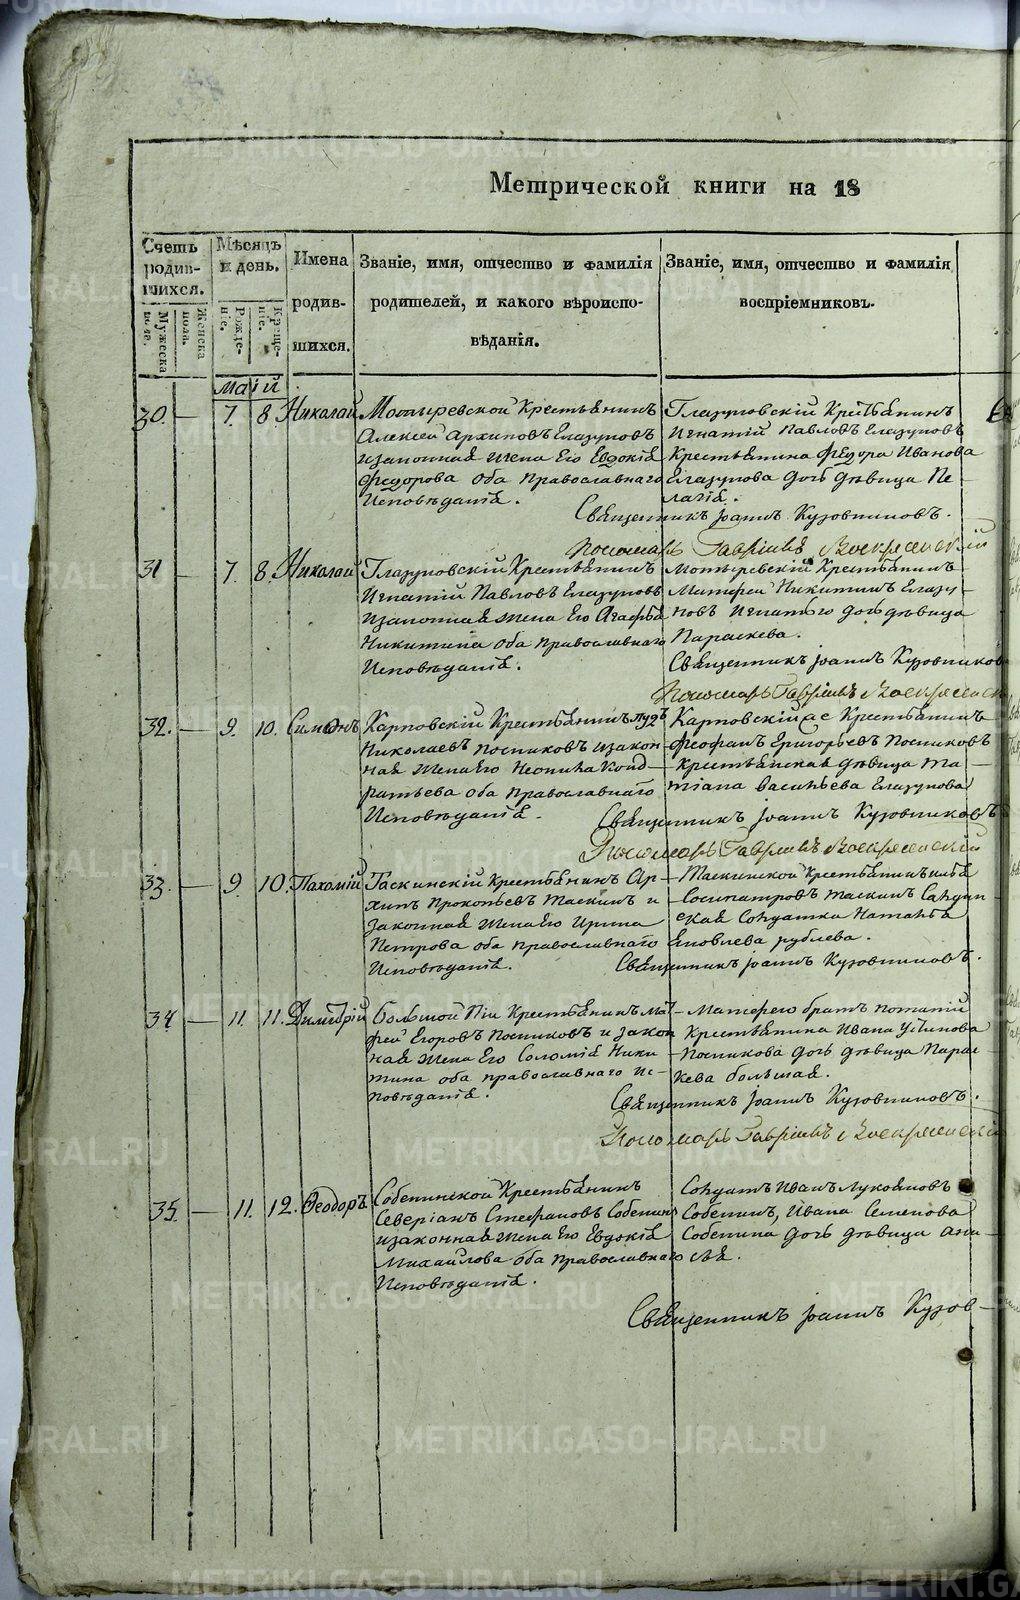 Метрической книги на 18
Счетъ родив-шихся.
Мужеска пола.
Женска пола.
Мѣсяцъ и день.
Рожде-ніе.
Креще-ніе.
Имена родив-шихся.
Званіе, имя, отчество и фамилія родителей, и какого вѣроиспо-вѣданія.
Званіе, имя, отчество и фамилія воспріемниковъ.
Маій
30. — 7. 8. Николай
Мотыревской Крестьянинъ
Алексей Архиповъ Глазуновъ
изаконная жена Его Евдокія
Федорова оба Православнаго
Исповѣданія.
Глазуновскій Крестьянинъ
Игнатій Павловъ Глазуновъ
Крестьянина Федора Иванова
Глазунова дочь дѣвица Пе-
лагія.
Священникъ Іоаннъ Кузовниковъ.
Пономарь Гавріилъ Воскресенскій
31 — 7. 8. Николай
Глазуновскій Крестьянинъ
Игнатій Павловъ Глазуновъ
изаконная жена Его Агафья
Никитина оба православнаго
Исповѣданія.
Мотыревскій Крестьянинъ
Матфей Никитинъ Глазу-
новъ Игнатього дочь дѣвица
Параскева.
Священникъ Іоаннъ Кузовников
Пономарь Гавріилъ Воскресенск
32. — 9. 10. Симеонъ
Карповскій Крестьянинъ
Николаевъ Посниковъ изакон
ная жена Его Неонила Конд-
ратьева оба Православнаго
Исповѣданія.
Карповскій Крестьянинъ
Феофанъ Григорьевъ Посниковъ
Крестьянская дѣвица Та-
тіана Васильева Глазунова
Священникъ Іоаннъ Кузовниковъ
Пономарь Гавріилъ Воскресенскій
33. — 9 10. Пахомій
Таскинскій Крестьянинъ Ар-
хипъ Прокопьевъ Таскинъ и
Законная жена Его Ирина
Петрова оба православнаго
Исповѣданія.
Таскинской Крестьянинъ Илья
Сосипатровъ Таскинъ
Солдатка Наталья
Яковлева Рублева.
Священникъ Іоаннъ Кузовниковъ.
34 — 11. 11. Димитрій
Крестьянинъ Мат-
фей Егоровъ Посниковъ и закон
ная жена Его Соломія Ники-
тина оба православнаго Ис-
повѣданія.
Матфею братъ Потапій
Крестьянина Ивана Устинова
Посникова дочь дѣвица Парас-
кева большая.
Священникъ Іоаннъ Кузовниковъ.
Пономарь Гавріилъ Воскресенскій
35. — 11. 12. Ѳеодоръ
Собенинской Крестьянинъ
Северіанъ Стефановъ Собенинъ
изаконная жена Его Евдокія
Михайлова оба православнаго
Исповѣданія.
Солдатъ Иванъ Лукояновъ
Собенинъ, Ивана Семенова
Собенина дочь дѣвица Ани-
сья.
Священникъ Іоаннъ Кузов-
METRIKI.GASO-URAL.RU